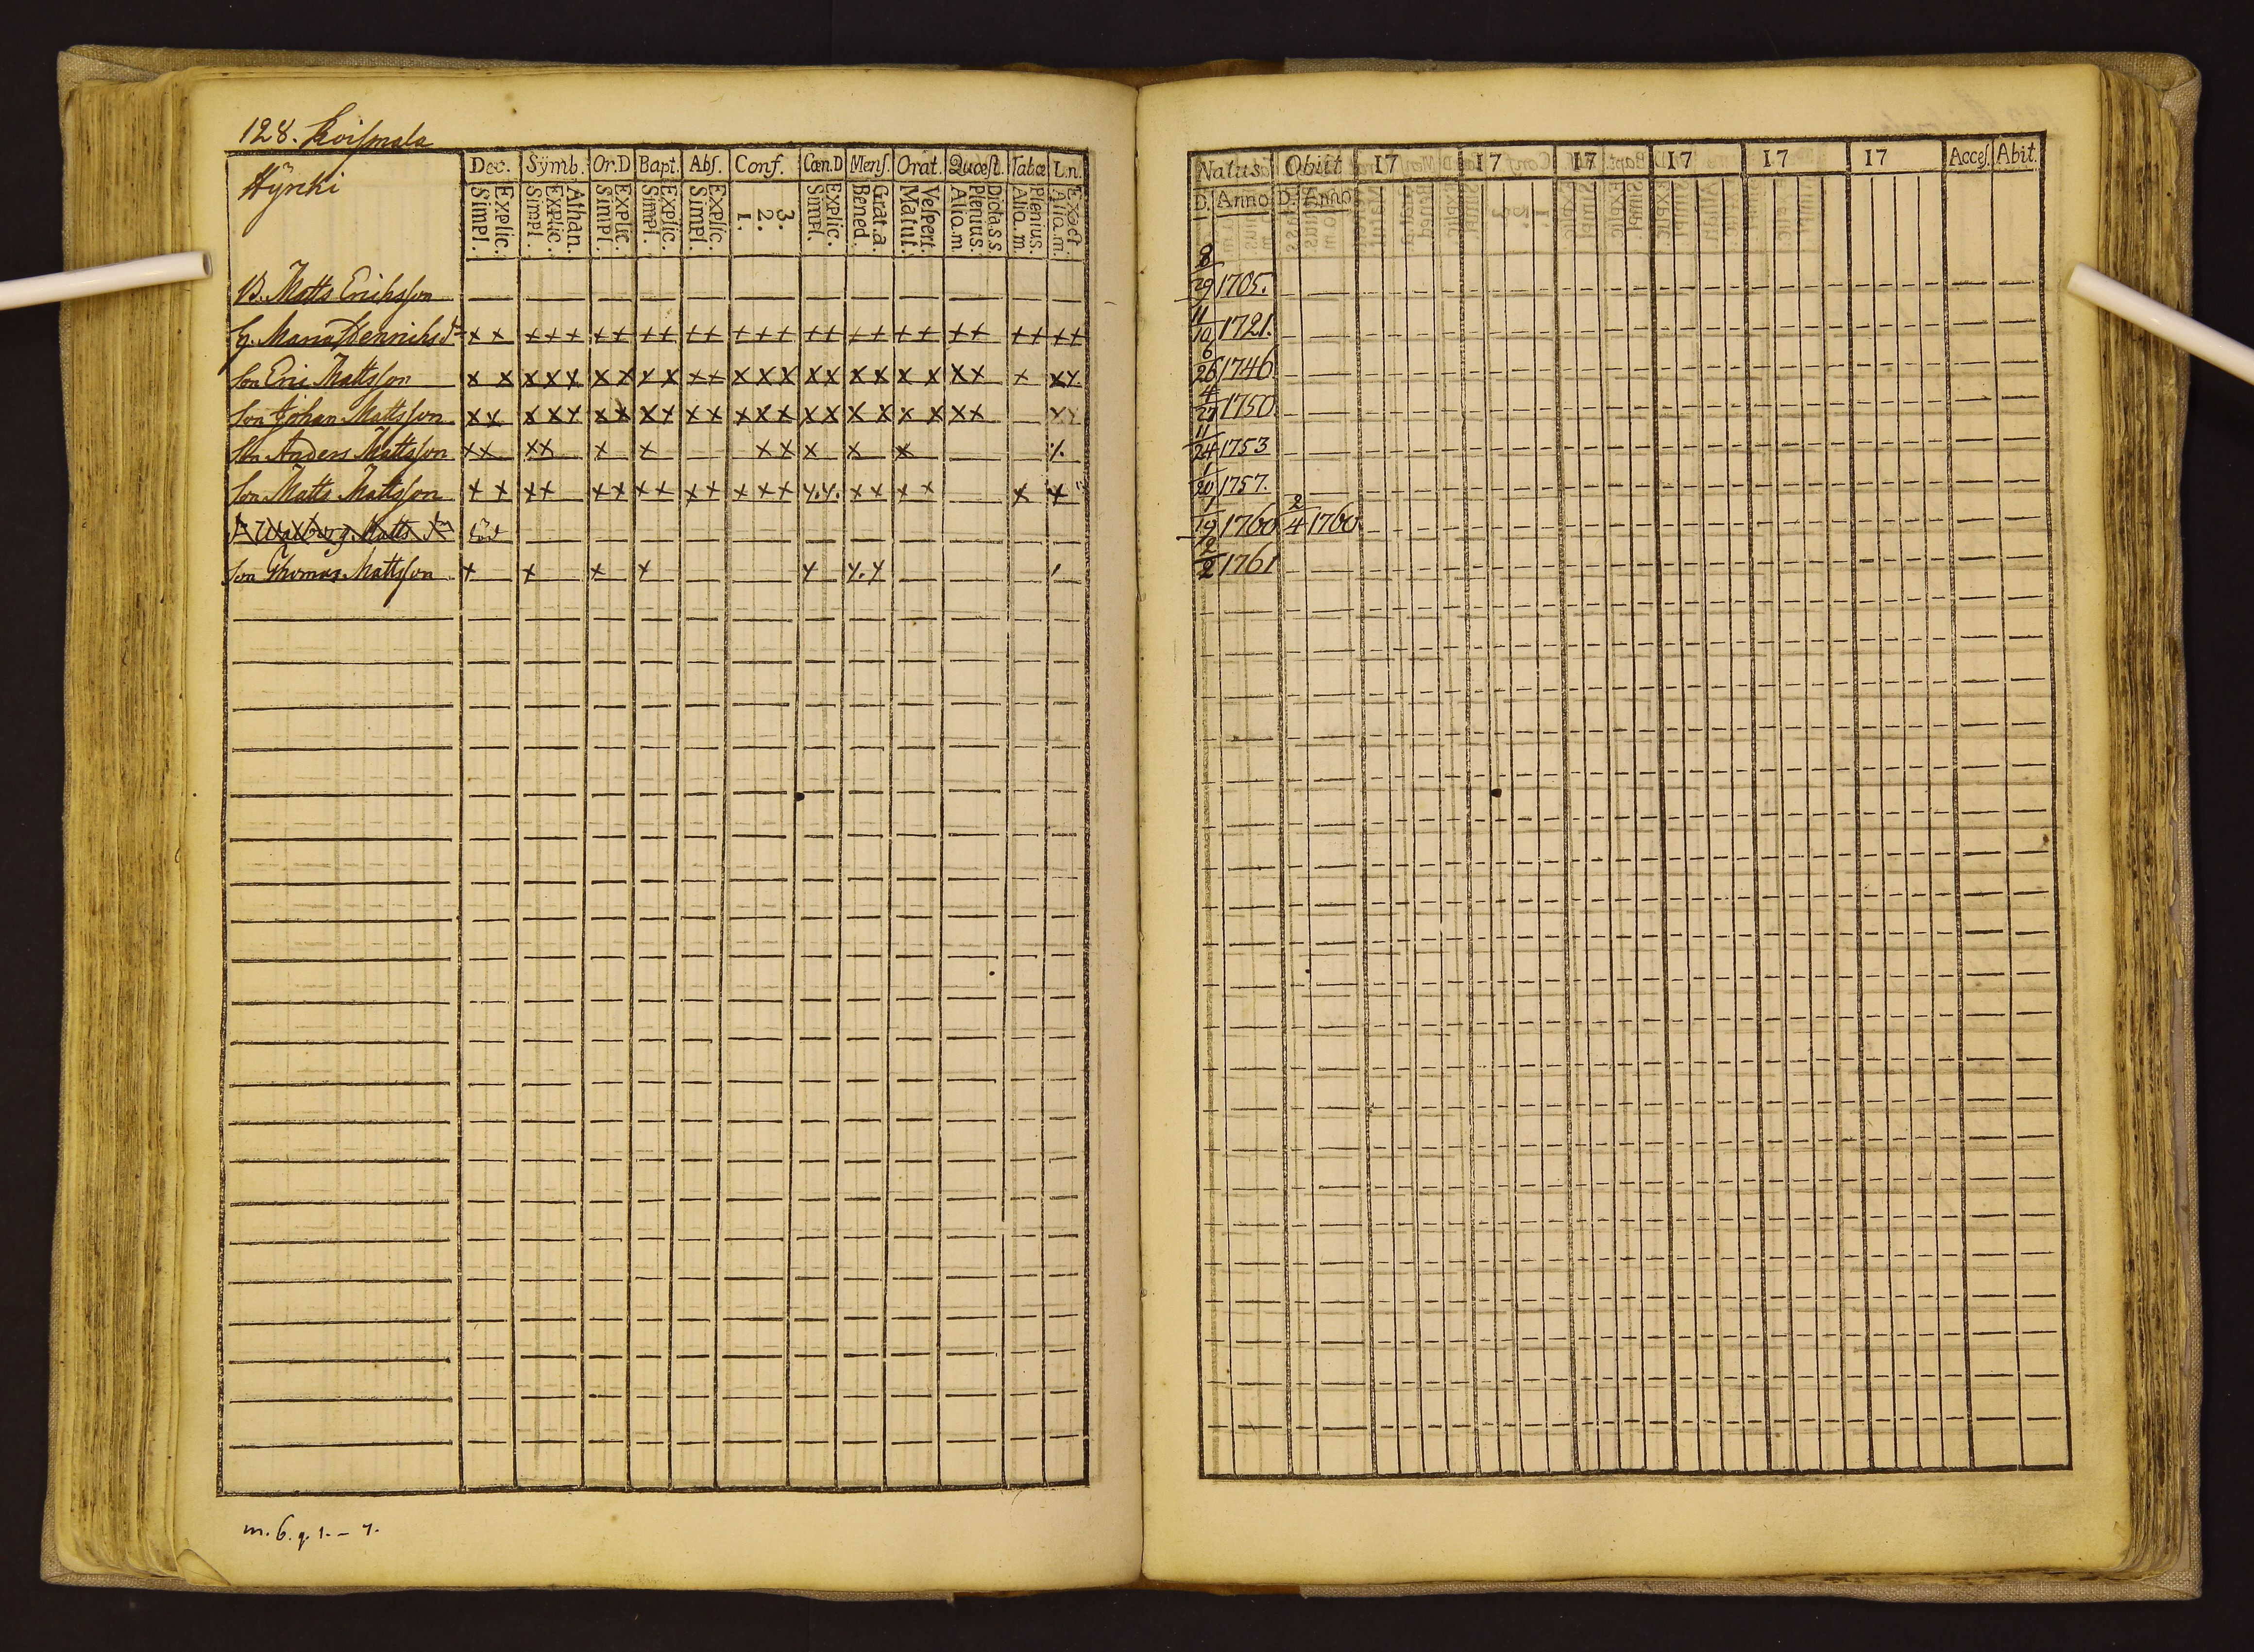 128. Koismala
Hyrcki
Dec. Symb. Or.D Bapt. Abſ. Conf. Cæn.D Menſ. Orat. Quæſt. Tatæ L.n.
Simpl. Explic. Simpl. Explic. Athan. Simpl. Explic. Simpl. Explic. Simpl. Explic. 1. 2. 3. Simpl. Explic. Bened. Grat.a. Matut. Veſpert. Alio.m Plenius. Dicta.s.s. Alio.m. Plenius. Alio.m. Exact.
Natus Obiit 17 17 17 17 17 17 Acceſ. Abit.
D. Anno D. Anno
B. Matts Erichsson 8/29 1705.
H. Maria Hennrichsdr x x x x x x x x x x x x x x x x x x x x x x x x x 11/10 1721.
Son Eric Mattsson x x x x x x x x x x x x x x x x x x x x x x x x 6/26 1746
Son Johan Mattsson x x x x x x x x x x x x x x x x x x x x x x x 4/27 1750.
Son Anders Mattsson x x x x x x x x x x x 11/24 1753
Son Matts Mattsson x x x x x x x x x x x x x x x x x x x x x 1/20 1757.
D. Walborg Matts dr död 1/19 1760 2/4 1760.
Son Thomas Mattsson x x x x x x x 12/2 1761
m. 6. q. 1. - 7.